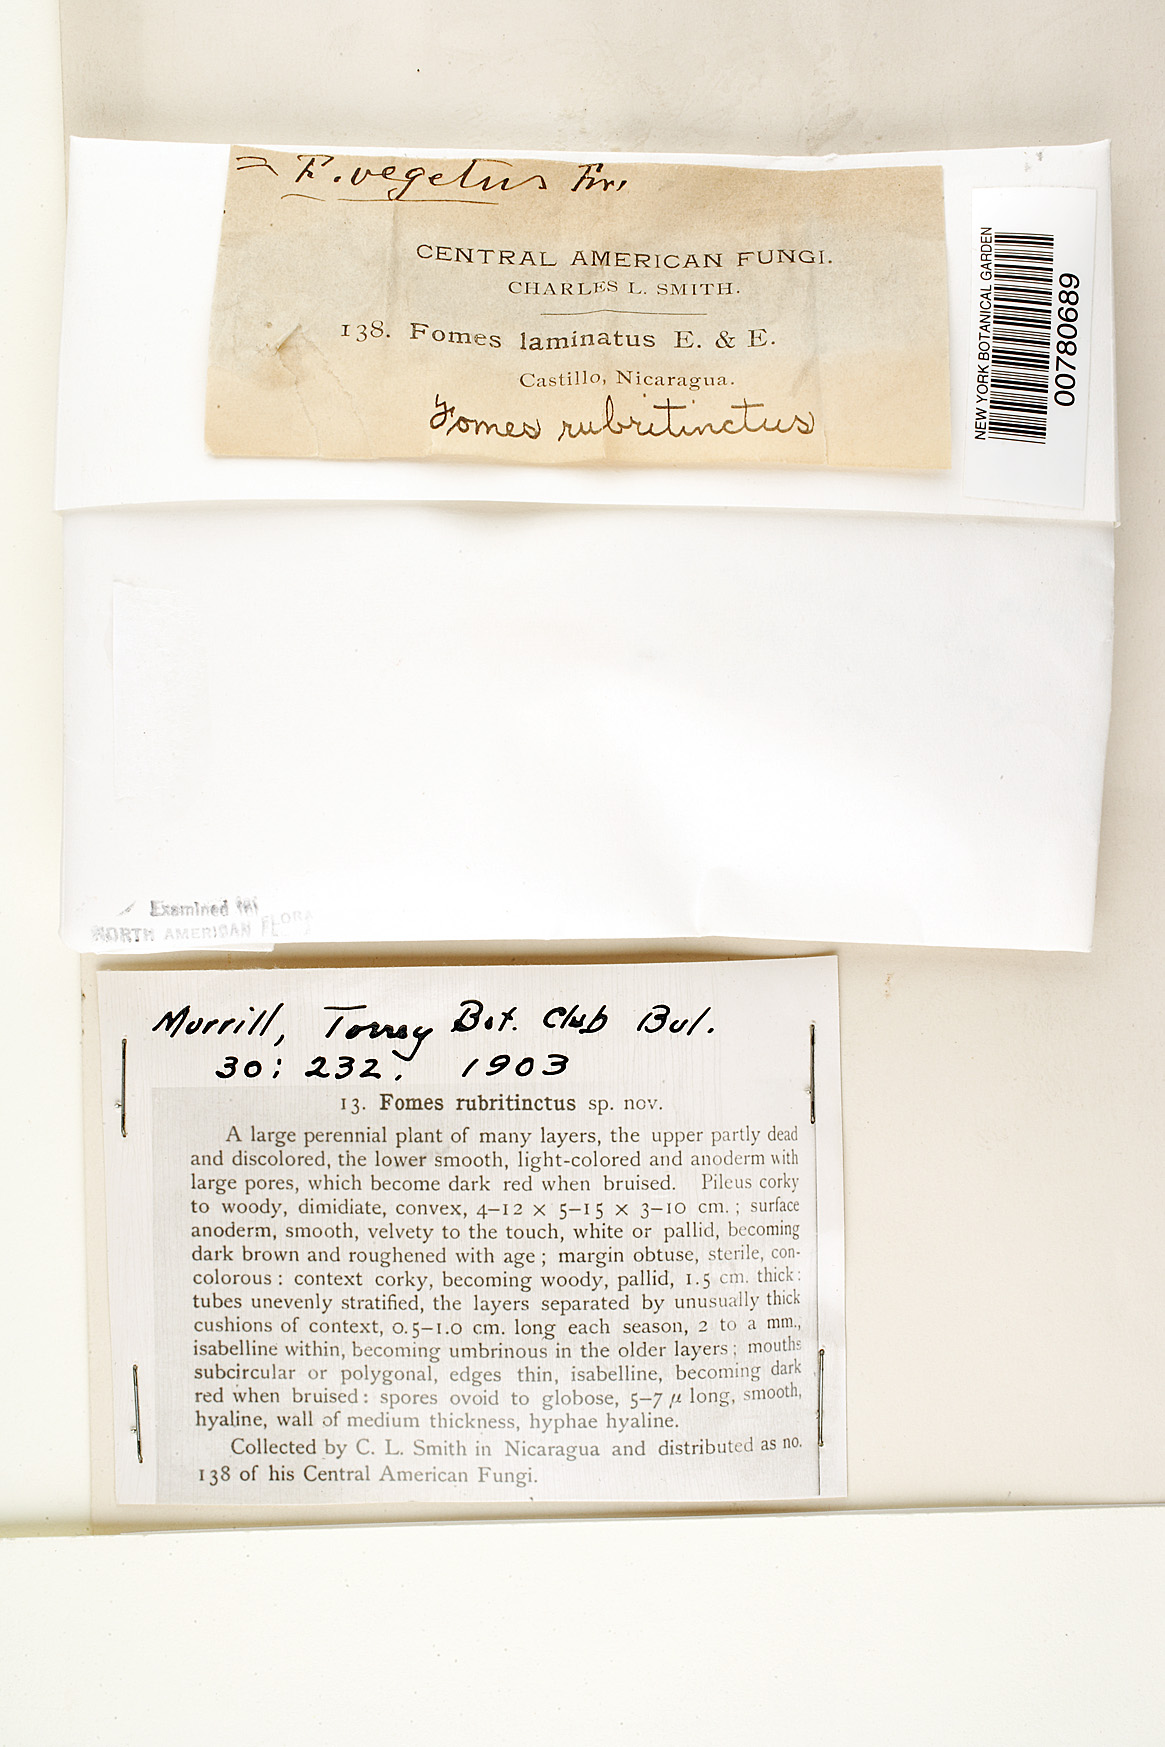 = F. vegetus Fr.
CENTRAL AMERICAN FUNGI.
CHARLES L. SMITH.
138. Fomes laminatus E. & E.
Castillo, Nicaragua.
Fomes rubritinctus
NEW YORK BOTANICAL GARDEN
00780689
Examined for
NORTH AMERICAN FLORA
Murrill, Torrey Bot. Club Bul.
30: 232. 1903
13. Fomes rubritinctus sp. nov.
A large perennial plant of many layers, the upper partly dead
and discolored, the lower smooth, light-colored and anoderm with
large pores, which become dark red when bruised. Pileus corky
to woody, dimidiate, convex, 4–12 x 5–15 x 3–10 cm. ; surface
anoderm, smooth, velvety to the touch, white or pallid, becoming
dark brown and roughened with age ; margin obtuse, sterile, con-
colorous : context corky, becoming woody, pallid, 1.5 cm. thick :
tubes unevenly stratified, the layers separated by unusually thick
cushions of context, 0.5–1.0 cm. long each season, 2 to a mm.,
isabelline within, becoming umbrinous in the older layers ; mouths
subcircular or polygonal, edges thin, isabelline, becoming dark
red when bruised : spores ovoid to globose, 5–7 µ long, smooth,
hyaline, wall of medium thickness, hyphae hyaline.
Collected by C. L. Smith in Nicaragua and distributed as no.
138 of his Central American Fungi.